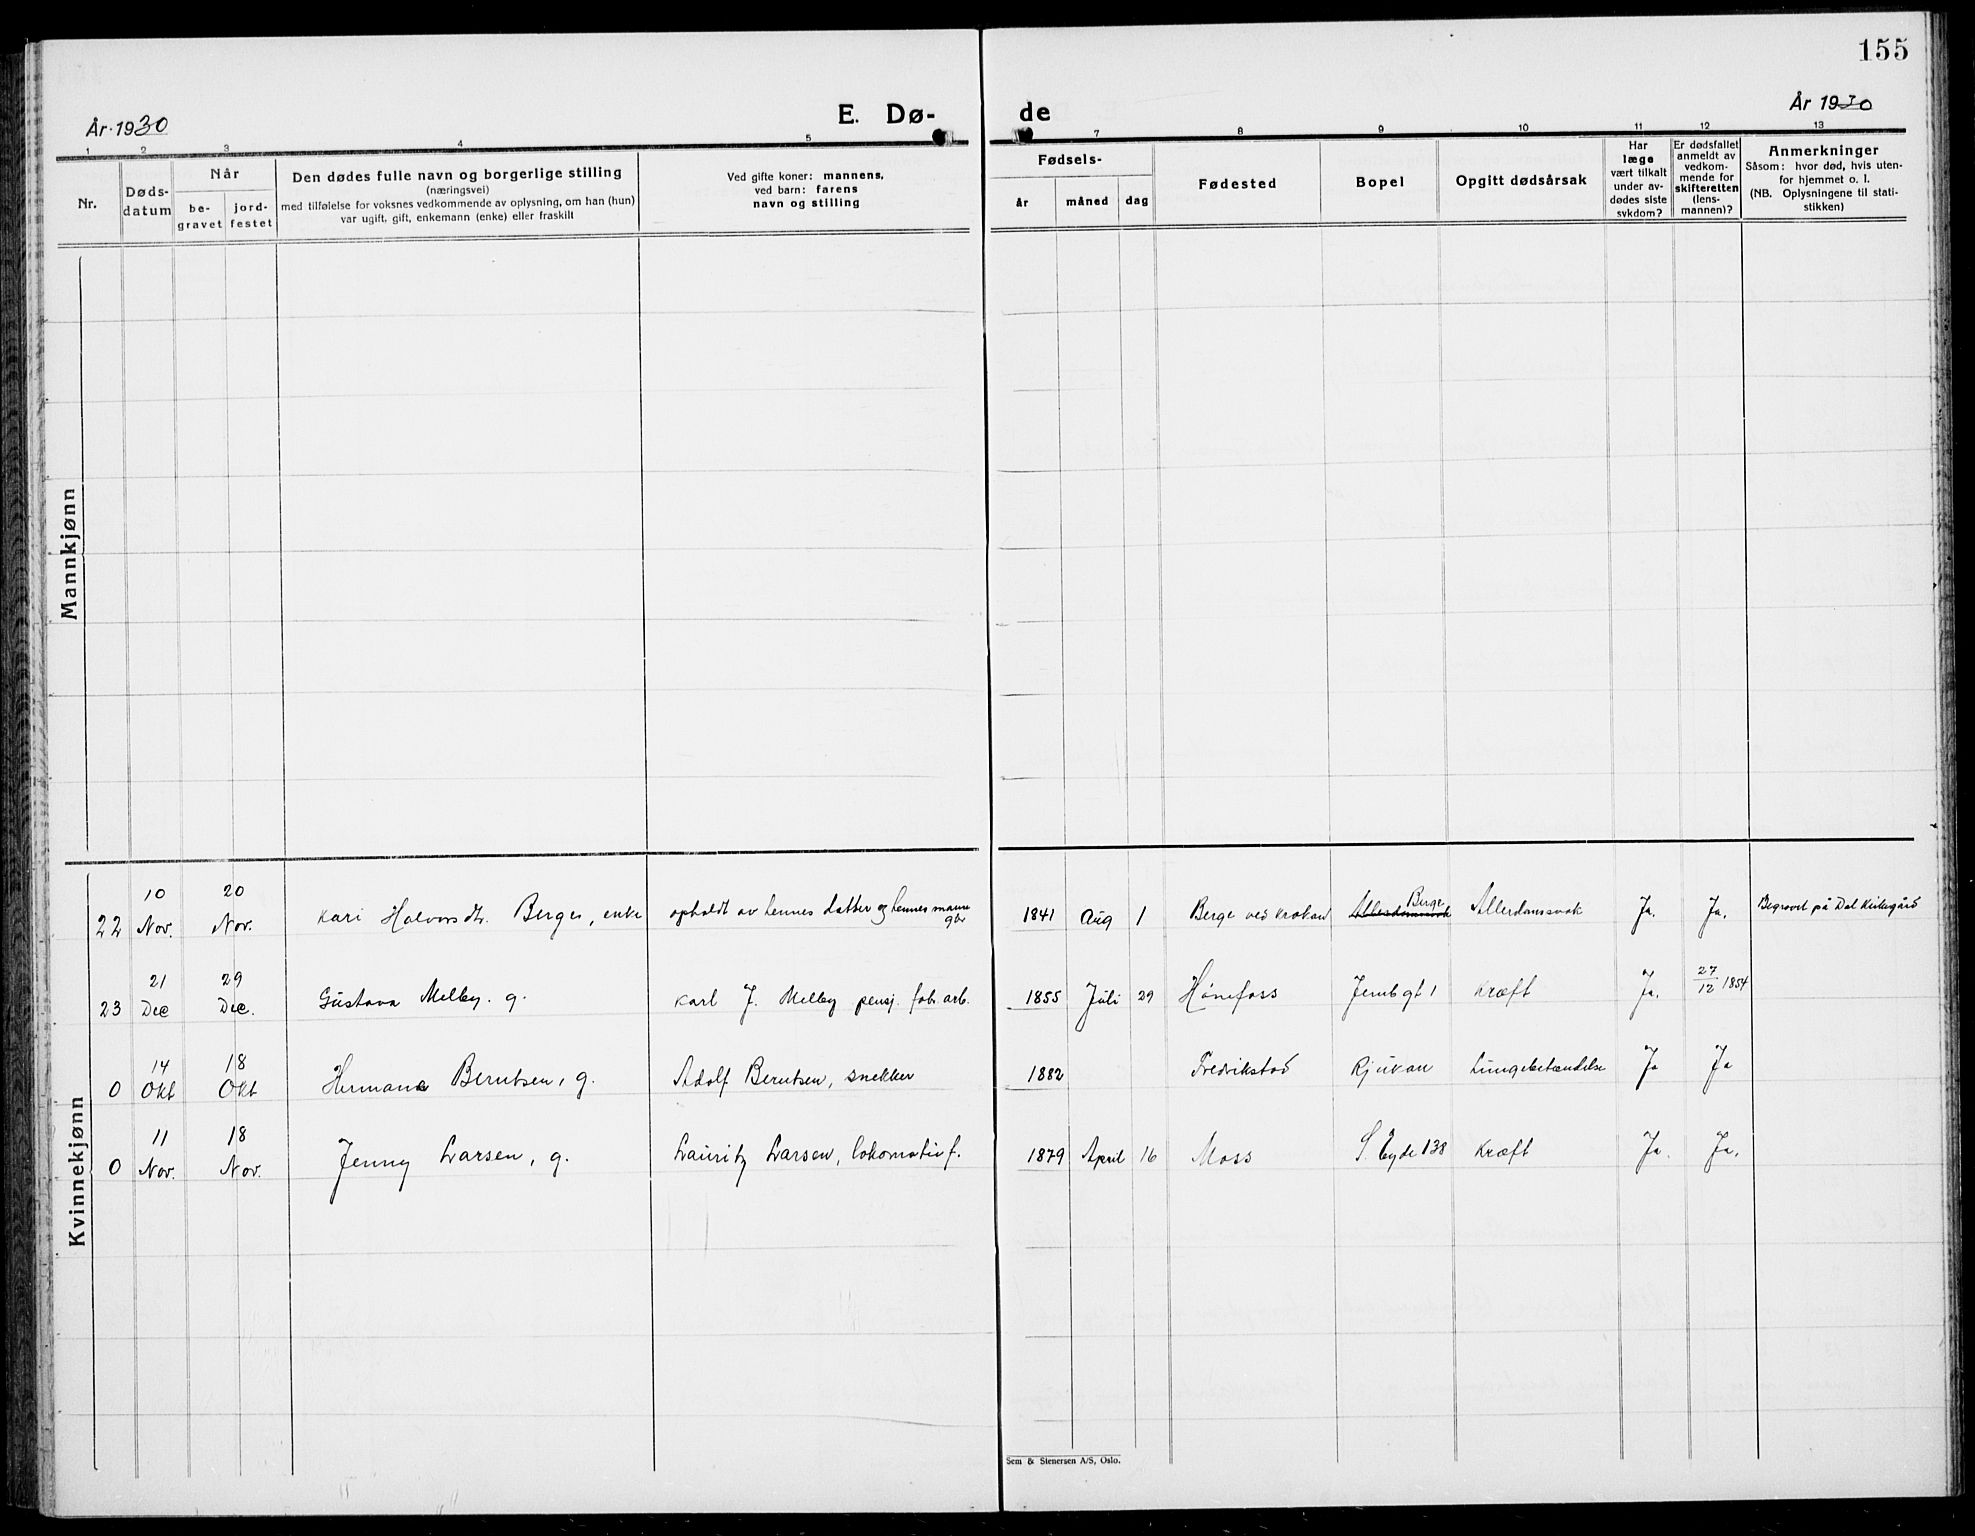 155
År 1930
E. Dø-
de
År 1930
1 2 3 4 5 7 8 9 10 11 12 13
Nr.
Døds-
datum
Når
be-
gravet
jord-
festet
Den dødes fulle navn og borgerlige stilling
(næringsvei)
med tilføielse for voksnes vedkommende av oplysning, om han (hun)
var ugift, gift, enkemann (enke) eller fraskilt
Ved gifte koner: mannens,
ved barn: farens
navn og stilling
Fødsels-
år måned dag
Fødested
Bopel
Opgitt dødsårsak
Har
læge
vært tilkalt
under av-
dødes siste
sykdom?
Er dødsfallet
anmeldt av
vedkom-
mende for
skifteretten
(lens-
mannen)?
Anmerkninger
Såsom: hvor død, hvis uten-
for hjemmet o. l.
(NB. Oplysningene til stati-
stikken)
Mannkjønn
Kvinnekjønn
22 10 Nov. 20 Nov. Kari Halvorsdtr. Berge, enke opholdt av hennes datter og hennes mann gbr 1841 Aug 1 Berge ved Krokan Berge Alderdomssvak Ja. Ja. Begravet på Dal Kirkegård
23 21 Dec 29 Dec. Gustava Melby. g. Karl J. Melby pensj. fabr. arb. 1855 Juli 29 Hønefoss Jernbgt 1 Kræft Ja. 27/12 1854
0 14 Okt 18 Okt Hermana Berntsen, g. Adolf Berntsen, snekker 1882 Fredrikstad Rjukan Lungebetændelse Ja Ja
0 11 Nov. 18 Nov. Jenny Larsen, g. Lauritz Larsen, lokomotivf. 1879 April 16 Moss S. Eyde 138 Kræft Ja. Ja.
Sem & Stenersen A/S, Oslo.